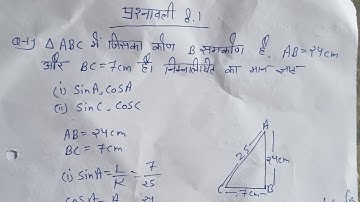 प्रश्नावली 8.1
Q-1) △ABC में जिसका कोण B समकोण है, AB=24cm
और BC=7cm है। निम्नलिखित का मान
(i) SinA, CosA
(ii) SinC, CosC
AB=24cm
BC=7cm
(i) SinA=L/K=7/25
A
25
24cm
C
7cm
B
CosA=A
24